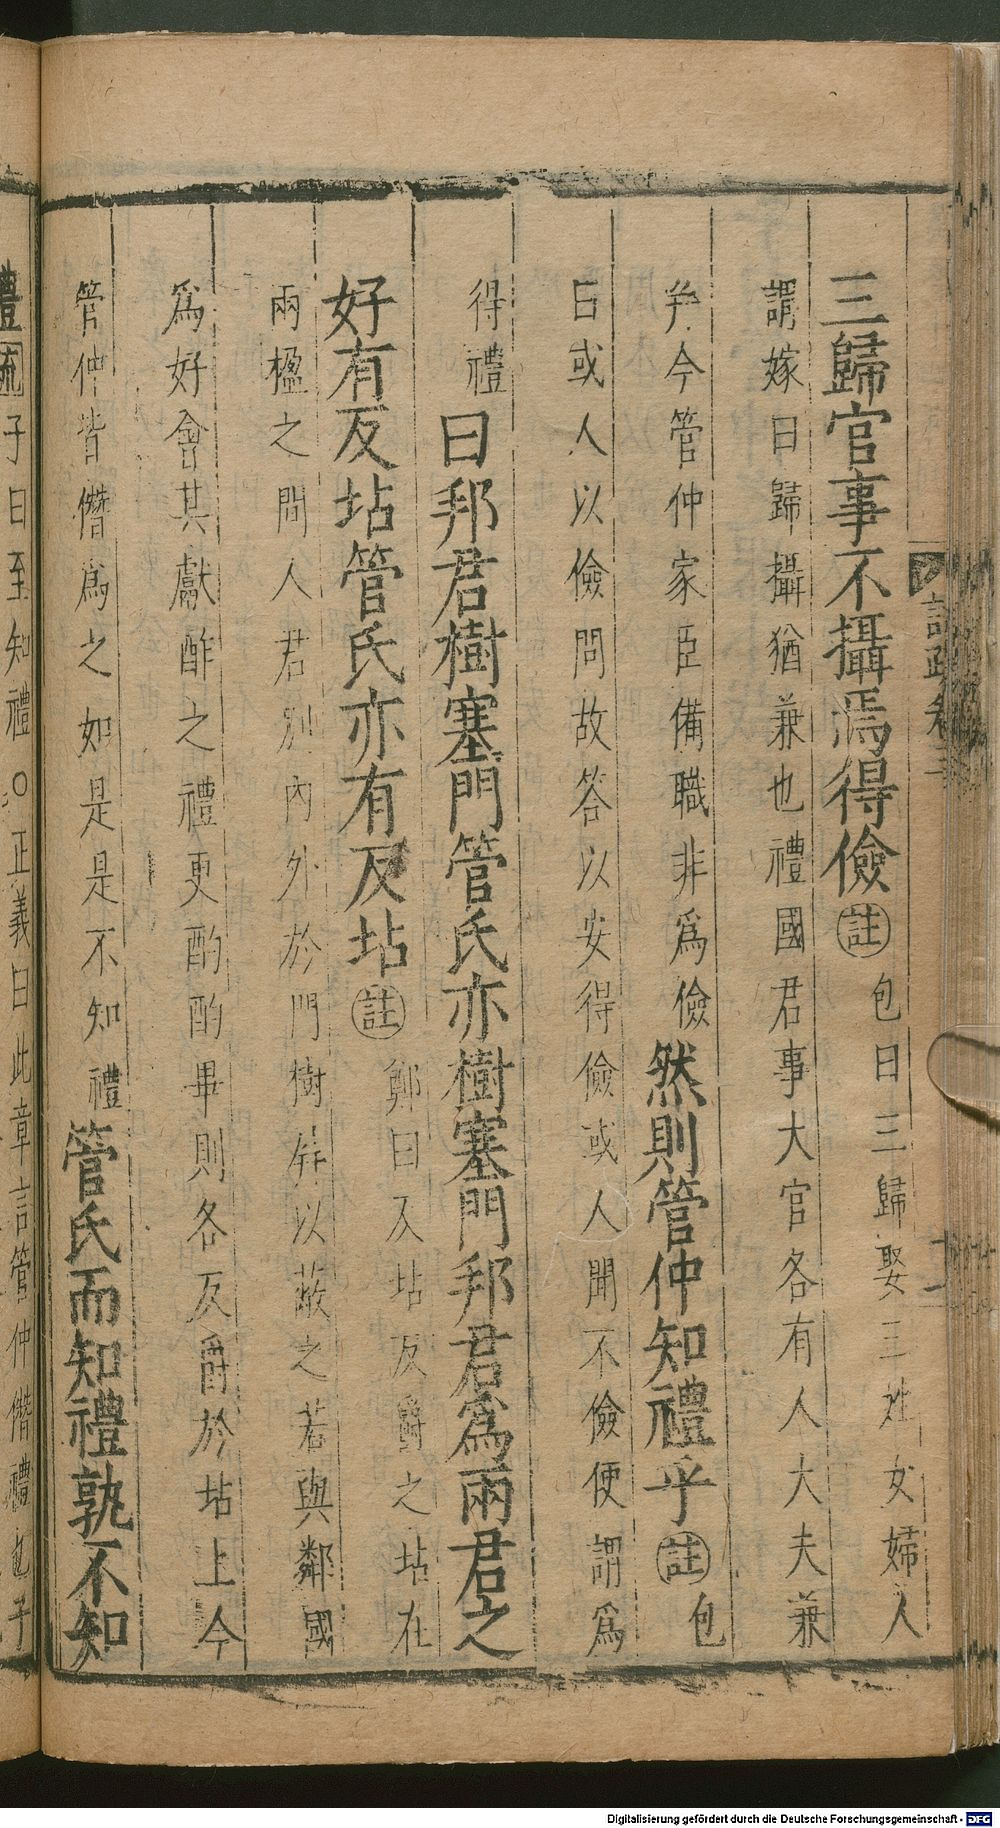 三歸官事不攝焉得儉註包曰三歸娶三姓女婦人
謂嫁曰歸攝猶兼也禮國君事大官各有人大夫兼
并今管仲家臣備職非爲儉然則管仲知禮乎註包
曰或人以儉問故答以安得儉或人聞不儉便謂爲
得禮曰邦君樹塞門管氏亦樹塞門邦君爲兩君之
好有反坫管氏亦有反坫註鄭曰反坫反爵之坫在
兩楹之間人君別內外於門樹屏以蔽之若與鄰國
爲好會其獻酢之禮更酌酌畢則各反爵於坫上今
管仲皆僭爲之如是是不知禮管氏而知禮孰不知
禮疏子曰至知禮○正義曰此章言管仲僭禮也子
Digitalisierung gefördert durch die Deutsche Forschungsgemeinschaft - DFG